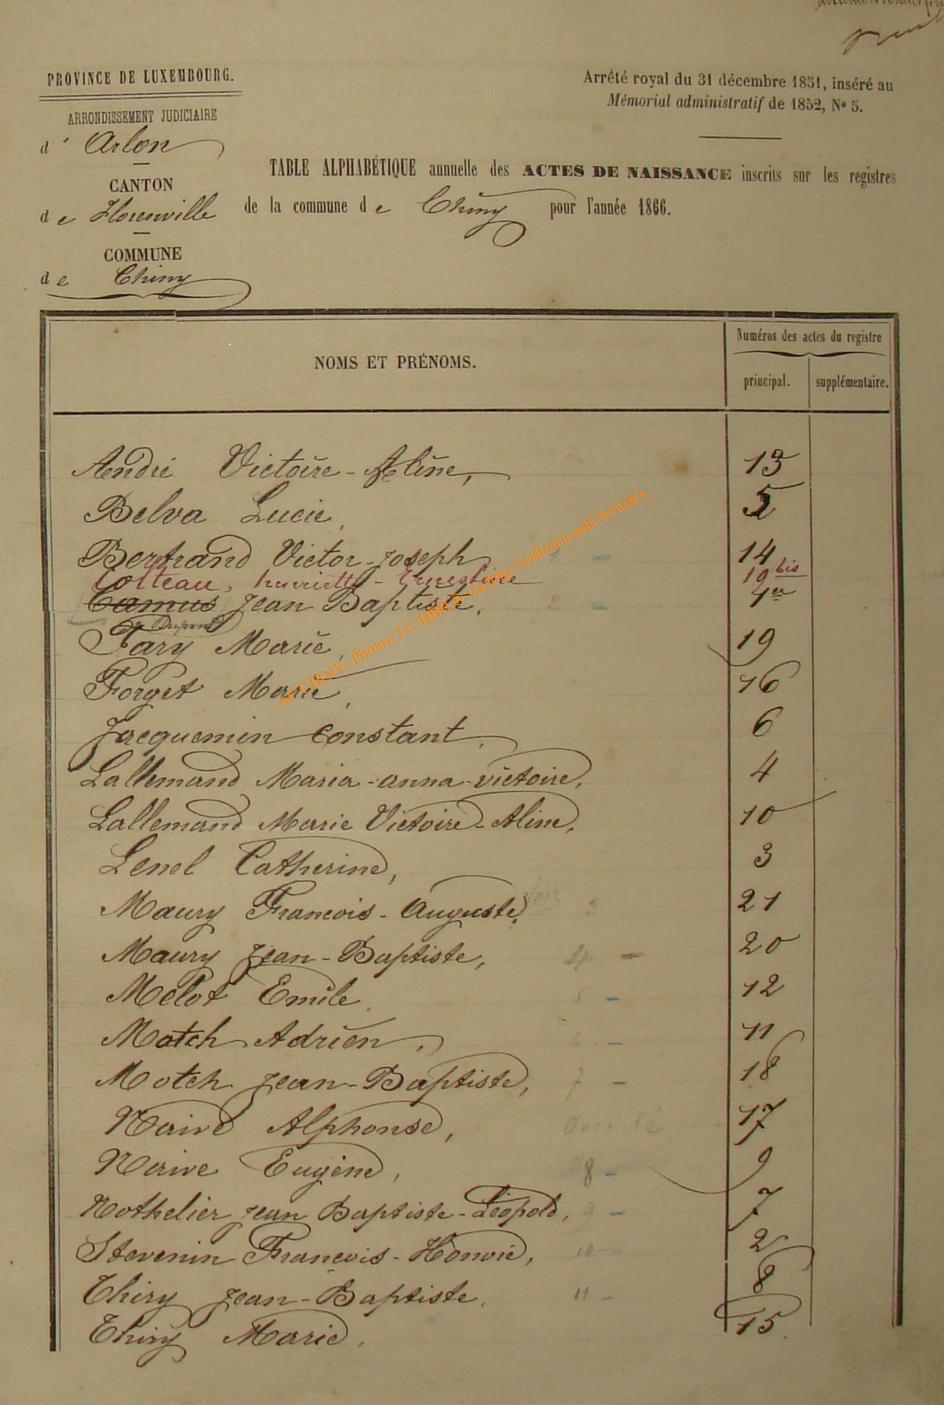 PROVINCE DE LUXEMBOURG.
ARRONDISSEMENT JUDICIAIRE
d' Arlon
CANTON
de Florenville
COMMUNE
de Chiny
Arrêté royal du 31 décembre 1851, inséré au
Mémorial administratif de 1852, No 5.
TABLE ALPHABÉTIQUE annuelle des ACTES DE NAISSANCE inscrits sur les registres
de la commune de Chiny pour l'année 1866.
NOMS ET PRÉNOMS.
Numéros des actes du registre
principal. supplémentaire.
André Victoire-Aline, 13
Belva Lucie, 5
Bertrand Victor-Joseph 14
Colleau, henriette-Ernestine 19 bis
Camus Jean Baptiste, 1er
Dupont
Fary Marie, 19
Forget Marie, 16
Jacquemin Constant, 6
Lallemand Maria-anna-victoire, 4
Lallemand Marie Victoire-Aline, 10
Lenel Catherine, 3
Maury Francois-Auguste, 21
Maury Jean-Baptiste, 20
Melot Emile, 12
Motch Adrien, 11
Motch Jean-Baptiste, 18
Noiive Alphonse, 17
Noiive Eugène, 8 9
Nothelier Jean Baptiste-Léopold, 7
Stevenin Francois-Honoré, 10 2
Thiry Jean-Baptiste, 11 8
Thiry Marie, 15